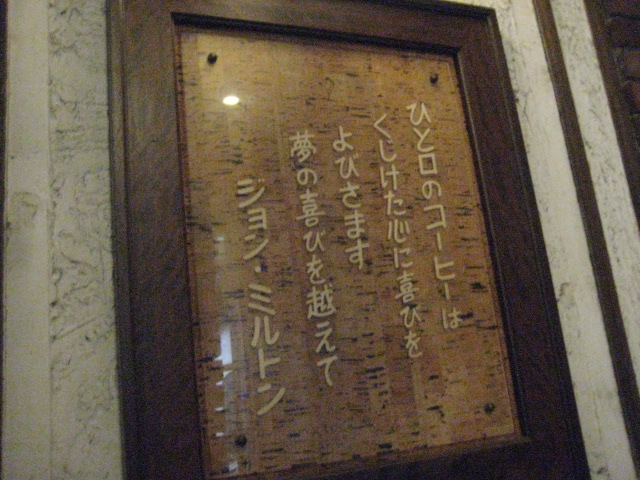 ひと口のコーヒーは
くじけた心に喜びを
よびさます
夢の喜びを越えて
ジョン・ミルトン